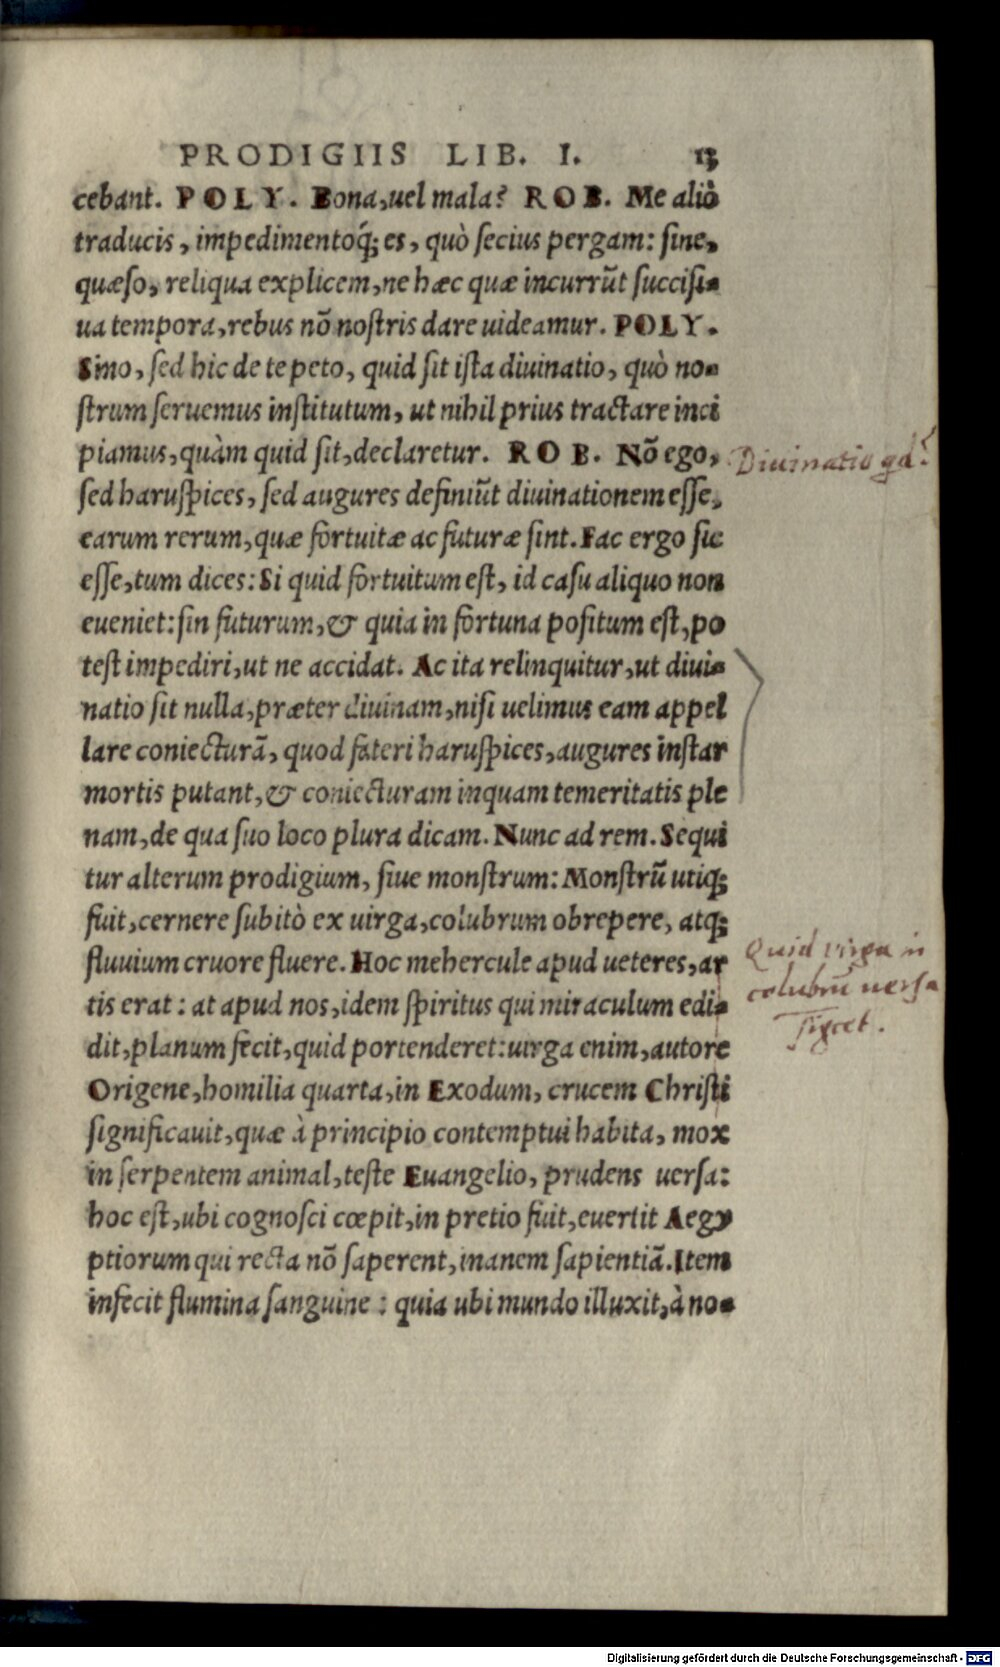 PRODIGIIS LIB. I. 13
cebant. POLY. Bona, uel mala? ROB. Me aliò
traducis, impedimentoq́; es, quò secius pergam: sine,
quæso, reliqua explicem, ne hæc quæ incurrũt succisi-
ua tempora, rebus nõ nostris dare uideamur. POLY.
Sino, sed hic de te peto, quid sit ista diuinatio, quò no-
strum seruemus institutum, ut nihil prius tractare inci
piamus, quàm quid sit, declaretur. ROB. Nõ ego,
Diuinatio qd.
sed haruspices, sed augures definiũt diuinationem esse,
earum rerum, quæ fortuitæ ac futuræ sint. Fac ergo sic
esse, tum dices: Si quid fortuitum est, id casu aliquo non
eueniet: sin futurum, & quia in fortuna positum est, po
test impediri, ut ne accidat. Ac ita relinquitur, ut diui-
natio sit nulla, præter diuinam, nisi uelimus eam appel
lare coniecturã, quod fateri haruspices, augures instar
mortis putant, & coniecturam inquam temeritatis ple
nam, de qua suo loco plura dicam. Nunc ad rem. Sequi
tur alterum prodigium, siue monstrum: Monstrũ utiq;
fuit, cernere subitò ex uirga, colubrum obrepere, atq;
fluuium cruore fluere. Hoc mehercule apud ueteres, ar
Quid virga in
colubrũ uersa
signet.
tis erat: at apud nos, idem spiritus qui miraculum edi-
dit, planum fecit, quid portenderet: uirga enim, autore
Origene, homilia quarta, in Exodum, crucem Christi
significauit, quæ à principio contemptui habita, mox
in serpentem animal, teste Euangelio, prudens uersa:
hoc est, ubi cognosci cœpit, in pretio fuit, euertit Aegy
ptiorum qui recta nõ saperent, inanem sapientiã. Item
infecit flumina sanguine: quia ubi mundo illuxit, à no-
Digitalisierung gefördert durch die Deutsche Forschungsgemeinschaft - DFG